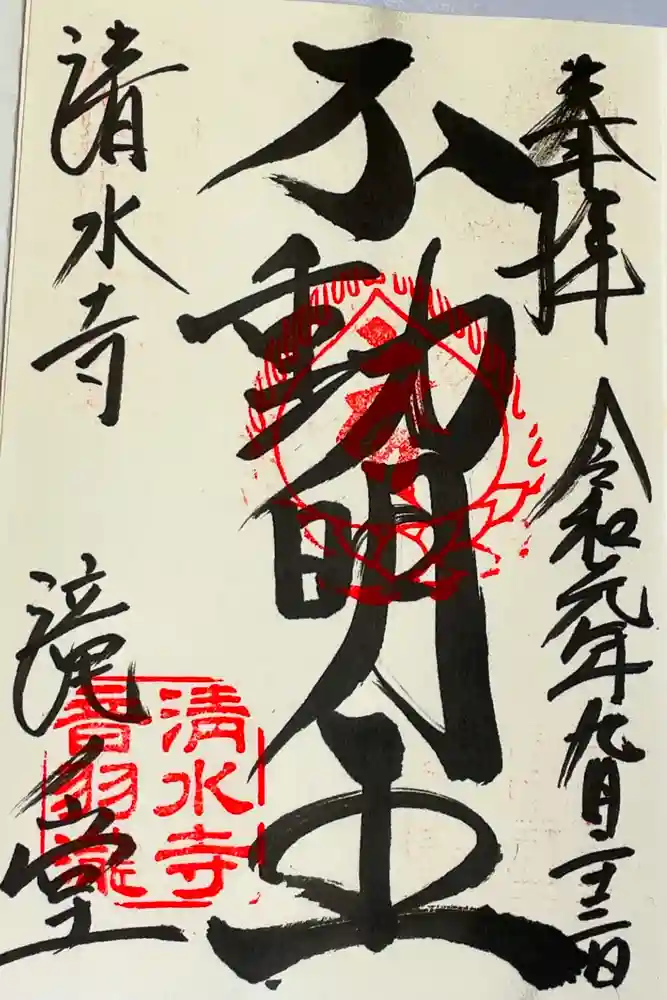 奉拝
令和元年九月二十二日
不動明王
清水寺
滝之堂
清水寺
音羽瀧